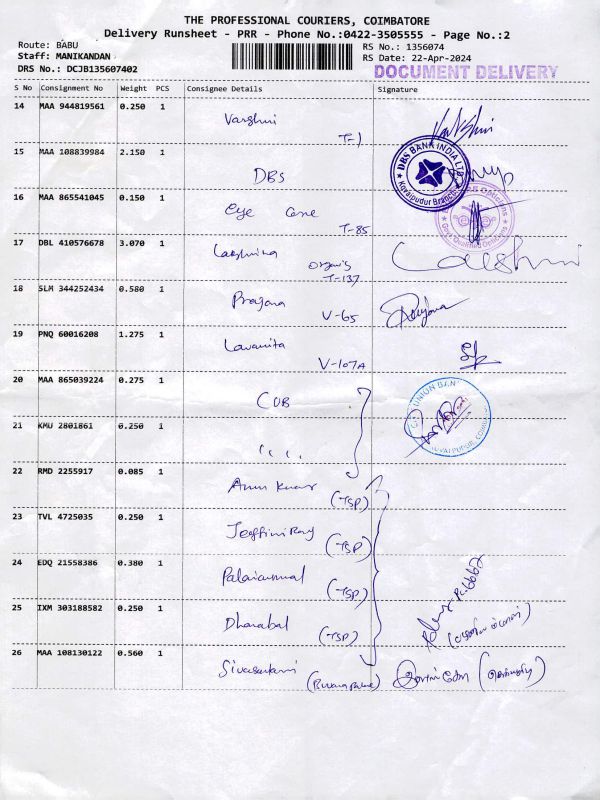 THE PROFESSIONAL COURIERS, COIMBATORE
Delivery Runsheet - PRR - Phone No.:0422-3505555 - Page No.:2
Route: BABU
Staff: MANIKANDAN
DRS No.: DCJB135607402
RS No.: 1356074
RS Date: 22-Apr-2024
DOCUMENT DELIVERY
S No Consignment No Weight PCS Consignee Details Signature
14 MAA 944819561 0.250 1 Varshni T-1
15 MAA 108839984 2.150 1 DBS
DBS BANK INDIA LTD
16 MAA 865541045 0.150 1 Eye Care T-85
17 DBL 410576678 3.070 1 T-137
Lakshmi
18 SLM 344252434 0.580 1 Prajana V-65
19 PNQ 60016208 1.275 1 Lavanita V-107A
20 MAA 865039224 0.275 1 CUB
UNION BANK
21 KMU 2801861 0.250 1 ,, ,,
22 RMD 2255917 0.085 1 Arun Kumar (TSP)
23 TVL 4725035 0.250 1 (TSP)
24 EDQ 21558386 0.380 1 Palaiammal (TSP)
25 IXM 303188582 0.250 1 Dharabal (TSP)
26 MAA 108130122 0.560 1